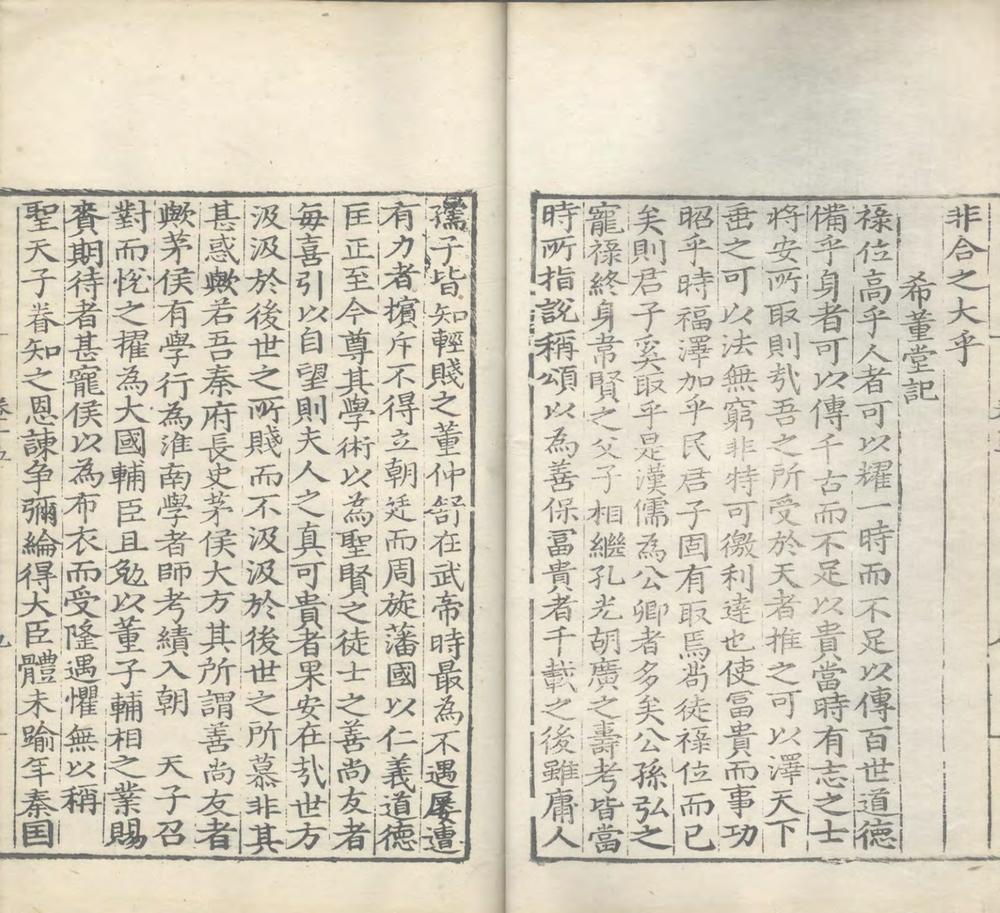 非合之大乎
希董堂記
祿位高乎人者可以耀一時而不足以傳百世道德
備乎身者可以傳千古而不足以貴當時有志之士
將安所取則㢤吾之所受於天者推之可以澤天下
垂之可以法無窮非特可徼利達也使冨貴而事功
昭乎時福澤加乎民君子固有取焉茍徒祿位而已
矣則君子奚取乎是漢儒為公卿者多矣公孫弘之
寵祿終身韋賢之父子相繼孔光胡廣之壽考皆當
時所指說稱頌以為善保冨貴者千載之後雖庸人
孺子皆知輕賤之董仲舒在武帝時最為不遇屢遭
有力者擯斥不得立朝廷而周旋藩國以仁義道德
匡正至今尊其學術以為聖賢之徒士之善尚友者
每喜引以自望則夫人之真可貴者果安在㢤世方
汲汲於後世之所賤而不汲汲於後世之所慕非其
甚惑歟若吾秦府長史茅侯大方其所謂善尚友者
歟茅侯有學行為淮南學者師考績入朝 天子召
對而悅之擢為大國輔臣且勉以董子輔相之業賜
賚期待者甚寵侯以為布衣而受隆遇懼無以稱
聖天子眷知之恩諫爭彌綸得大臣體未踰年秦国